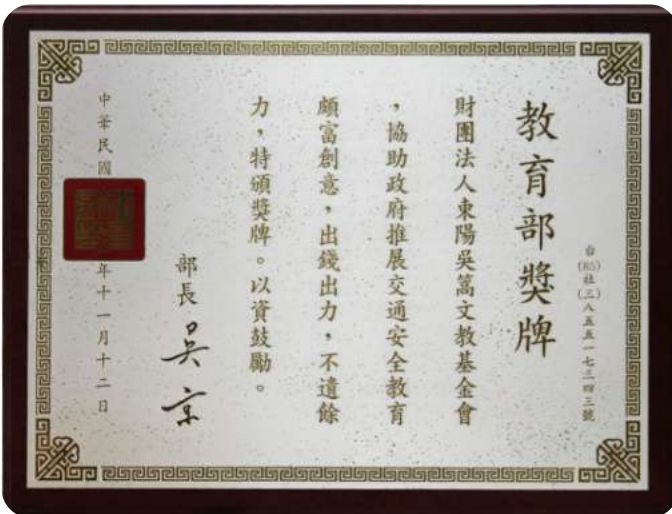 教育部獎牌
台(85)社(三)八五五一七三四三號
財團法人東陽吳篙文教基金會
，協助政府推展交通安全教育
頗富創意，出錢出力，不遺餘
力，特頒獎牌。以資鼓勵。
部長 吳京
中華民國
年十一月十二日